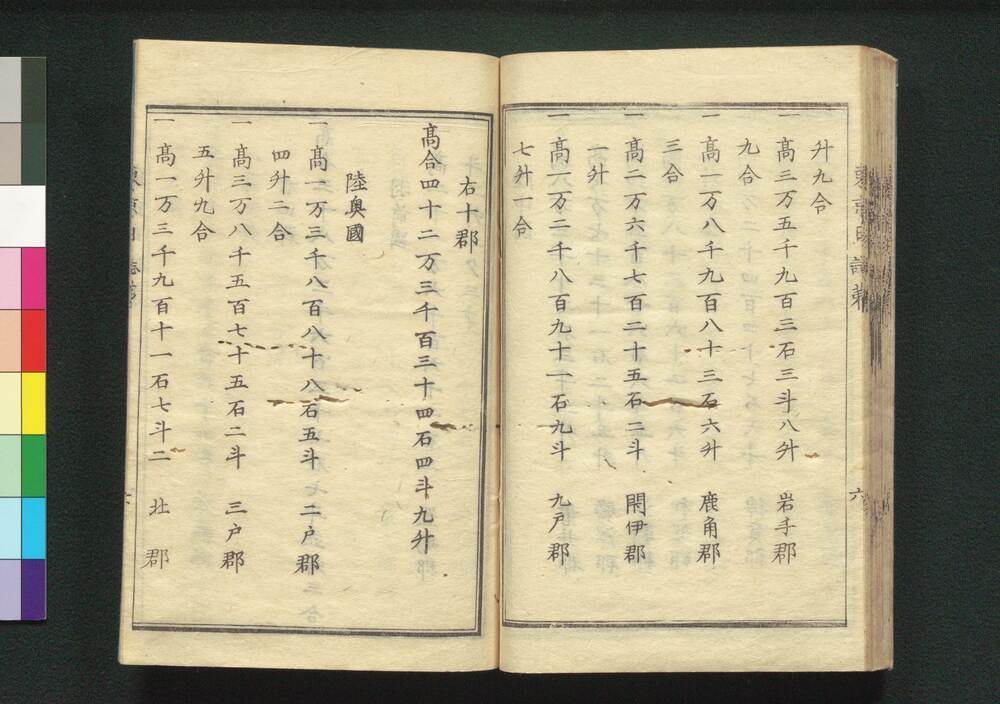 升九合
一 高三万五千九百三石三斗八升 岩手郡
九合
一 高一万八千九百八十三石六升 鹿角郡
三合
一 高二万六千七百二十五石二斗 閉伊郡
一升
一 高一万二千八百九十一石九斗 九戸郡
七升一合
六
右十郡
高合四十二万三千百三十四石四斗九升
陸奥國
一 高一万三千八百八十八石五斗 二戸郡
四升二合
一 高三万八千五百七十五石二斗 三戸郡
五升九合
一 高一万三千九百十一石七斗二 北郡